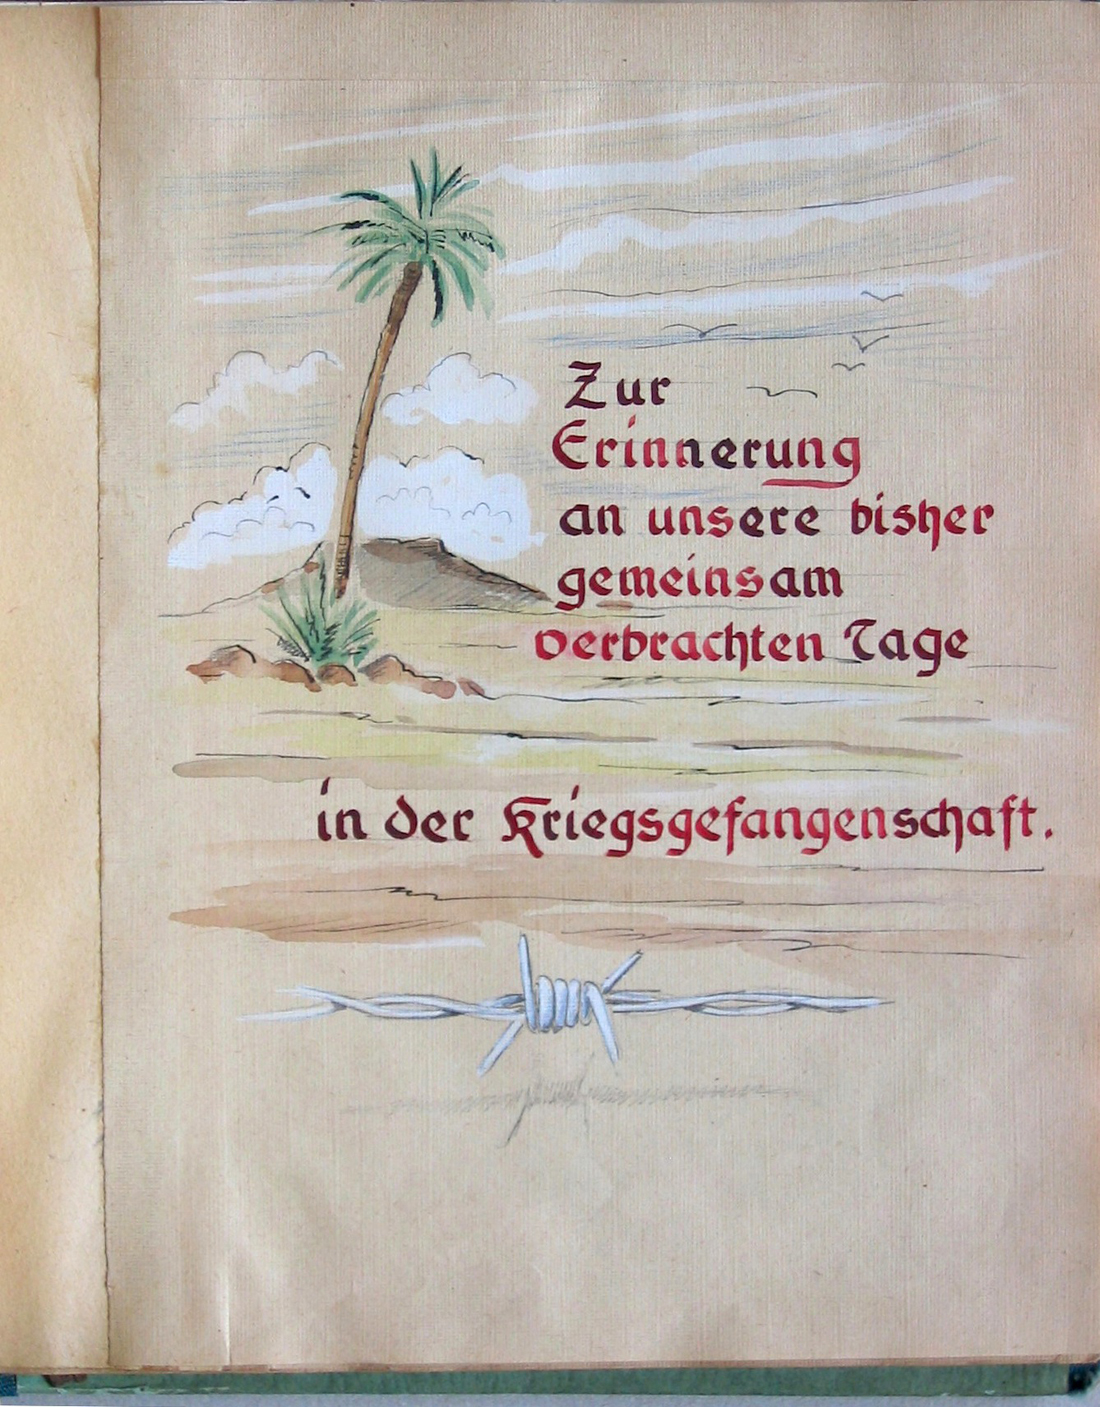 Zur
Erinnerung
an unsere bisher
gemeinsam
verbrachten Tage
in der Kriegsgefangenschaft.